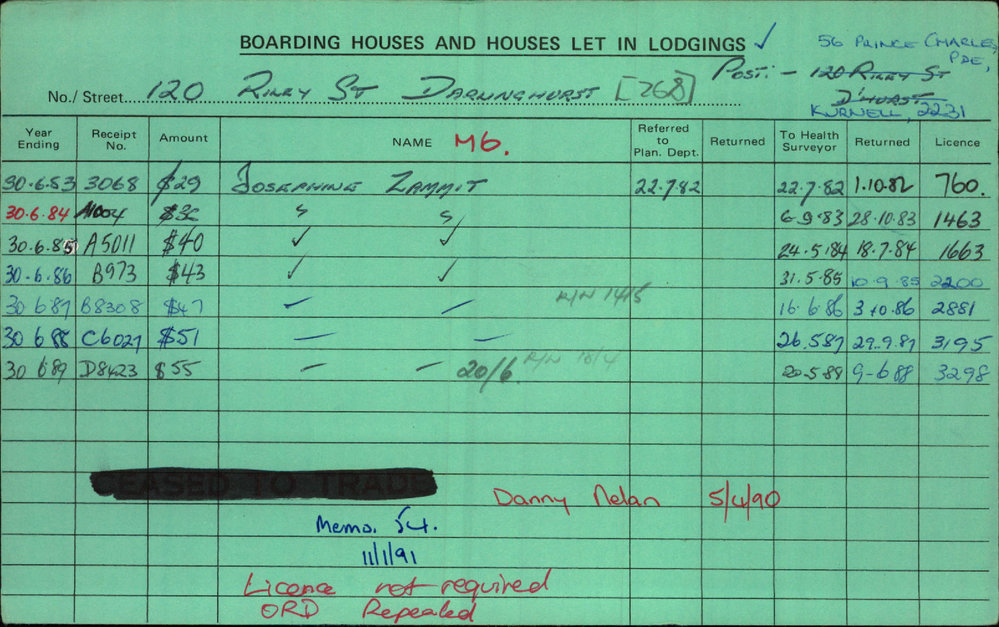 BOARDING HOUSES AND HOUSES LET IN LODGINGS ✓
56 PRINCE CHARLES PDE,
Post: - 120 RILEY ST
D'HURST
KURNELL, 2231
No./ Street 120 RILEY ST DARLINGHURST [268]
Year Ending Receipt No. Amount NAME M6. Referred to Plan. Dept. Returned To Health Surveyor Returned Licence
30.6.83 3068 $29 JOSEPHINE ZAMMIT 22.7.82 22.7.82 1.10.82 760.
30.6.84 A1004 $36 " " 6-9.83 28.10.83 1463
30.6.85 A5011 $40 ✓ ✓ 24.5.84 18.7.84 1663
30.6.86 B973 $43 ✓ ✓ 31.5.85 10.9.85 2200
30 6 87 B8308 $47 — — R/N 1415 16.6.86 3.10.86 2881
30 6 88 C6027 $51 — — 26.5.87 29.9.87 3195
30 6 89 D8423 $55 — — 20/6. R/N 18/4 20.5.88 9-6.88 3298
CEASED TO TRADE
Danny Nelan 5/4/90
Memo. S4.
11/1/91
Licence not required
ORD Repealed